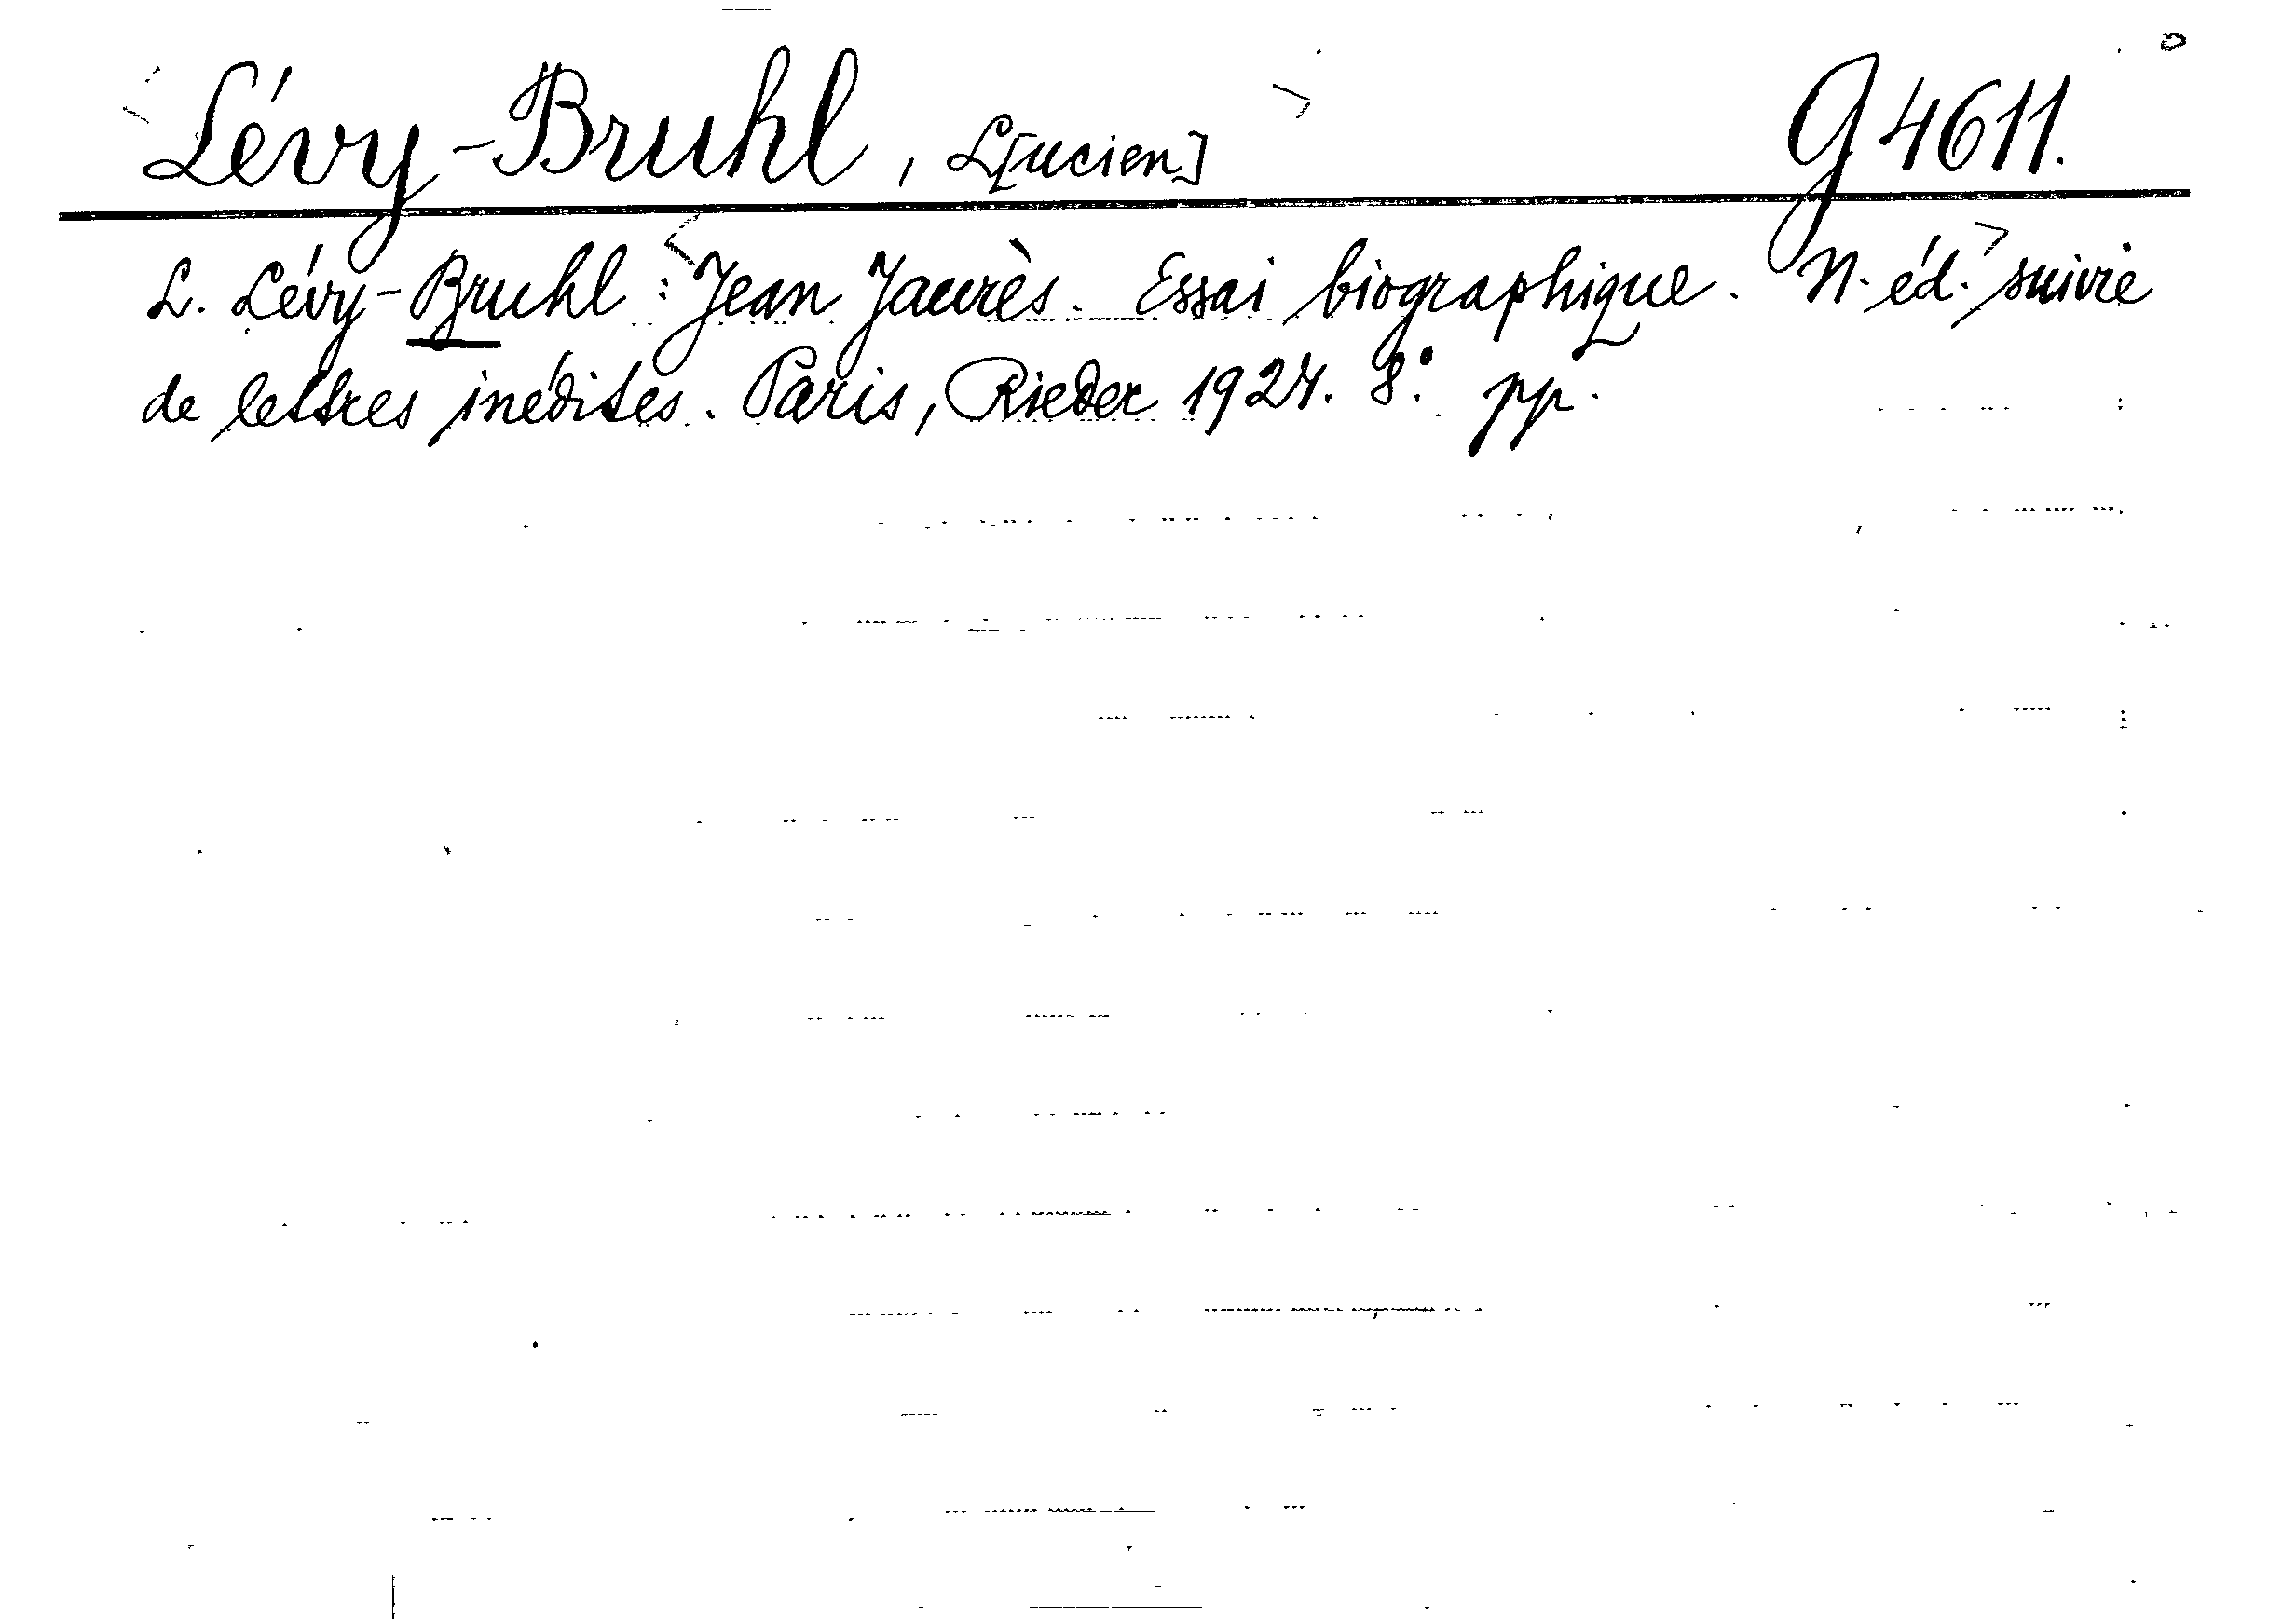 Lévy-Bruhl, L[ucien] G 4611.
L. Lévy-Bruhl : Jean Jaurès. Essai biographique. N. éd. suivie
de lettres inédites. Paris, Rieder 1924. 8° pp.